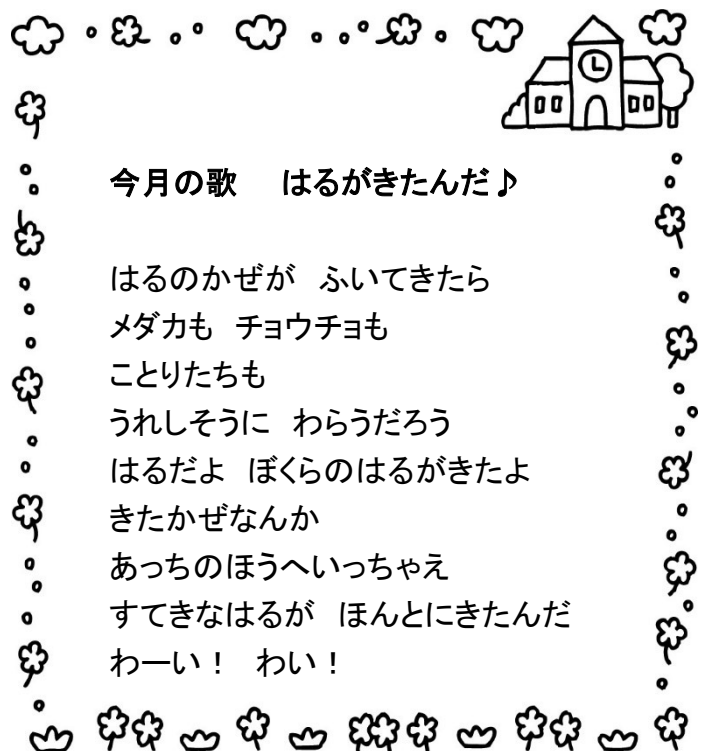 今月の歌　はるがきたんだ♪
はるのかぜが　ふいてきたら
メダカも　チョウチョも
ことりたちも
うれしそうに　わらうだろう
はるだよ　ぼくらのはるがきたよ
きたかぜなんか
あっちのほうへいっちゃえ
すてきなはるが　ほんとにきたんだ
わーい！　わい！